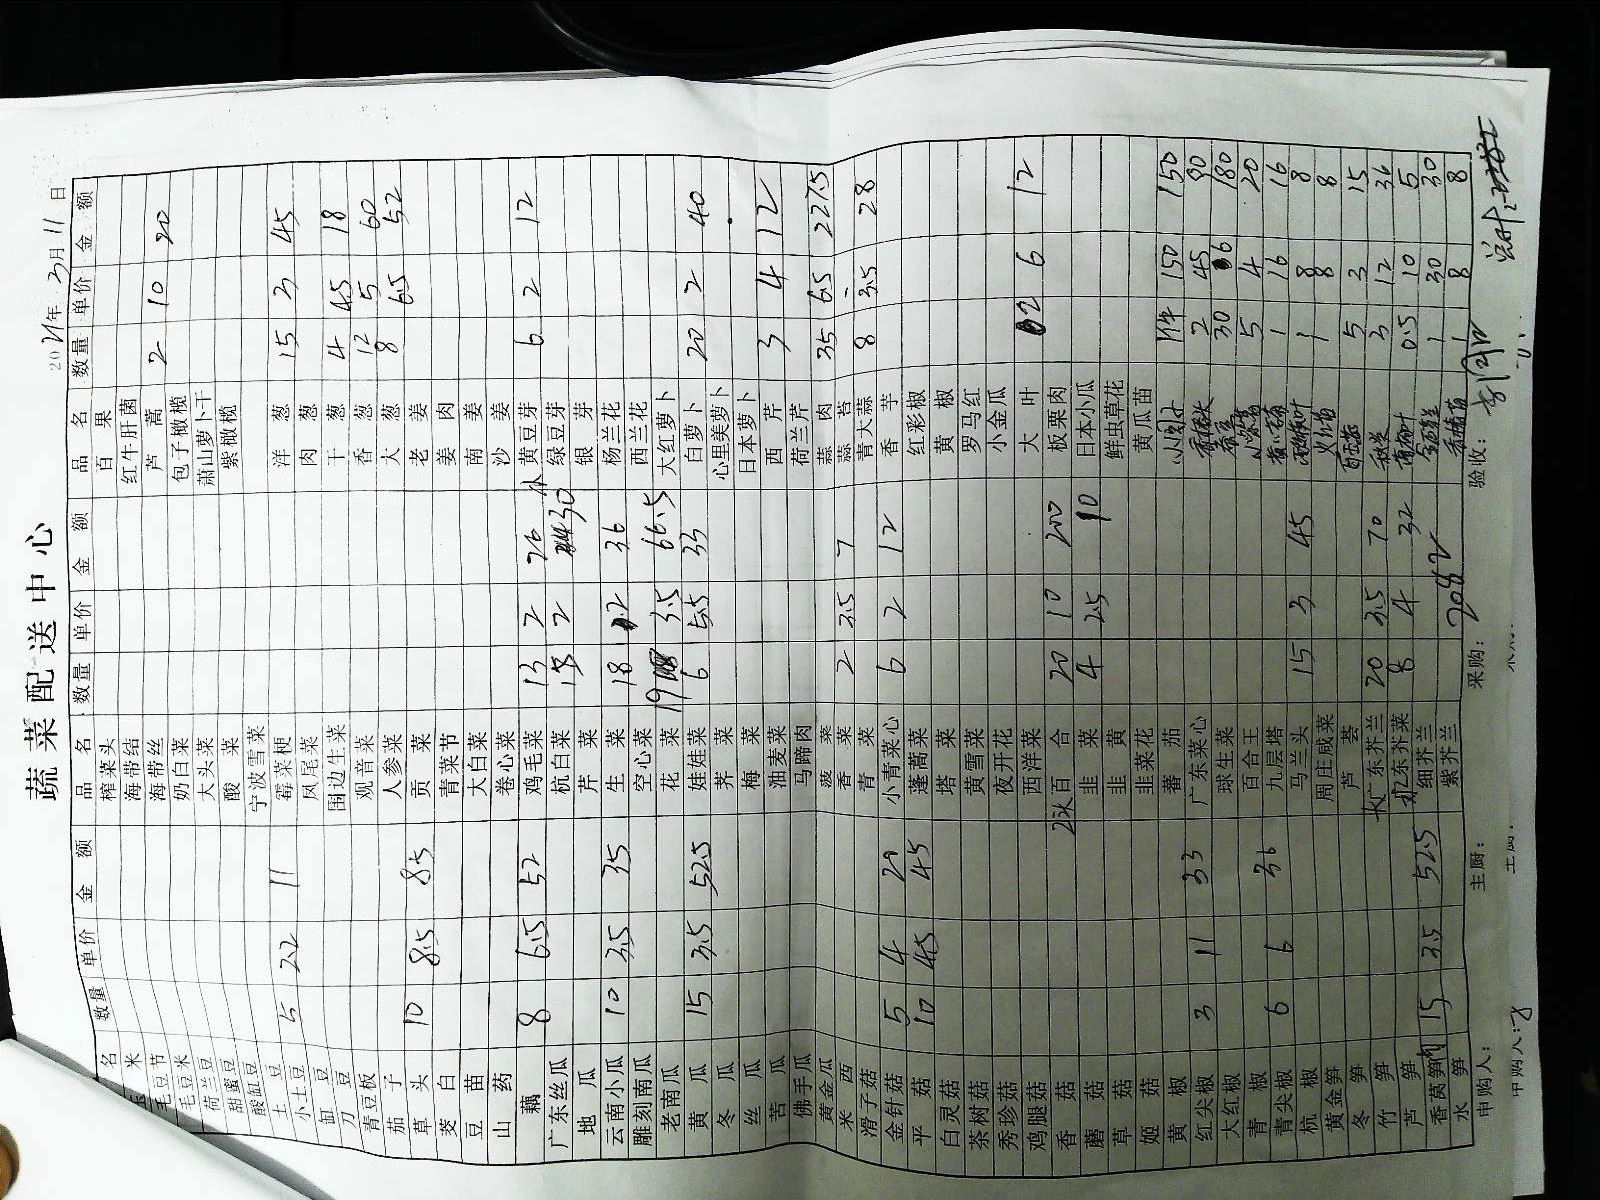 蔬菜配送中心
2021年3月11日
品名 数量 单价 金额
米
毛豆节
毛豆米
荷兰豆
甜蜜豆
酸缸豆
土豆 5 2.2 11
小土豆
缸豆
刀豆
青豆板
茄子
草头 10 8.5 85
茭白
豆苗
山药
藕 8 6.5 52
广东丝瓜
地瓜
云南小瓜 10 3.5 35
雕刻南瓜
老南瓜
黄瓜 15 3.5 52.5
冬瓜
丝瓜
苦瓜
佛手瓜
黄金瓜
米西
滑子菇
金针菇 5 4 20
平菇 10 4.5 45
白灵菇
茶树菇
秀珍菇
鸡腿菇
香菇
蘑菇
草菇
姬菇
黄椒
红尖椒 3 11 33
大红椒
青椒
青尖椒 6 6 36
杭椒
黄金笋
冬笋
竹笋
芦笋
香莴笋 15 3.5 52.5
水笋
品名 数量 单价 金额
榨菜头
海带结
海带丝
奶白菜
大头菜
酸菜
宁波雪菜
霉菜梗
凤尾菜
围边生菜
观音菜
人参菜
贡菜
青菜节
大白菜
卷心菜
鸡毛菜 13 2 26
杭白菜 15 2 30
芹菜
生菜 18 2 36
空心菜
花菜 19 3.5 66.5
娃娃菜 6 5.5 33
荠菜
梅菜
油麦菜
马蹄肉
菠菜
香菜 2 3.5 7
青菜
小青菜心 6 2 12
蓬蒿菜
塔菜
黄雪菜
夜开花
西洋菜
百合 20 10 200
韭菜 4 2.5 10
韭黄
韭菜花
蕃茄
广东菜心
球生菜
百合王
九层塔
马兰头 15 3 45
周庄咸菜
芦荟
广东芥兰 20 3.5 70
广东芥菜 8 4 32
细芥兰
紫芥兰
品名 数量 单价 金额
百果
红牛肝菌
芦蒿 2 10 20
包子橄榄
萧山萝卜干
紫橄榄
洋葱 15 3 45
肉葱
干葱 4 4.5 18
香葱 12 5 60
大葱 8 6.5 52
老姜
姜肉
南姜
沙姜
黄豆芽 6 2 12
绿豆芽
银芽
杨兰花
西兰花
大红萝卜
白萝卜 20 2 40
心里美萝卜
日本萝卜
西芹 3 4 12
荷兰芹
蒜肉 35 6.5 227.5
蒜苔
青大蒜 8 3.5 28
香芋
红彩椒
黄椒
罗马红
小金瓜
大叶 2 6 12
板栗肉
日本小瓜
鲜虫草花
黄瓜苗
1件 150 150
2 45 90
30 6 180
5 4 20
1 16 16
8 8
1 8 8
5 3 15
3 12 36
0.5 10 5
1 30 30
1 8 8
申购人：
主厨：
采购：
2082
验收：